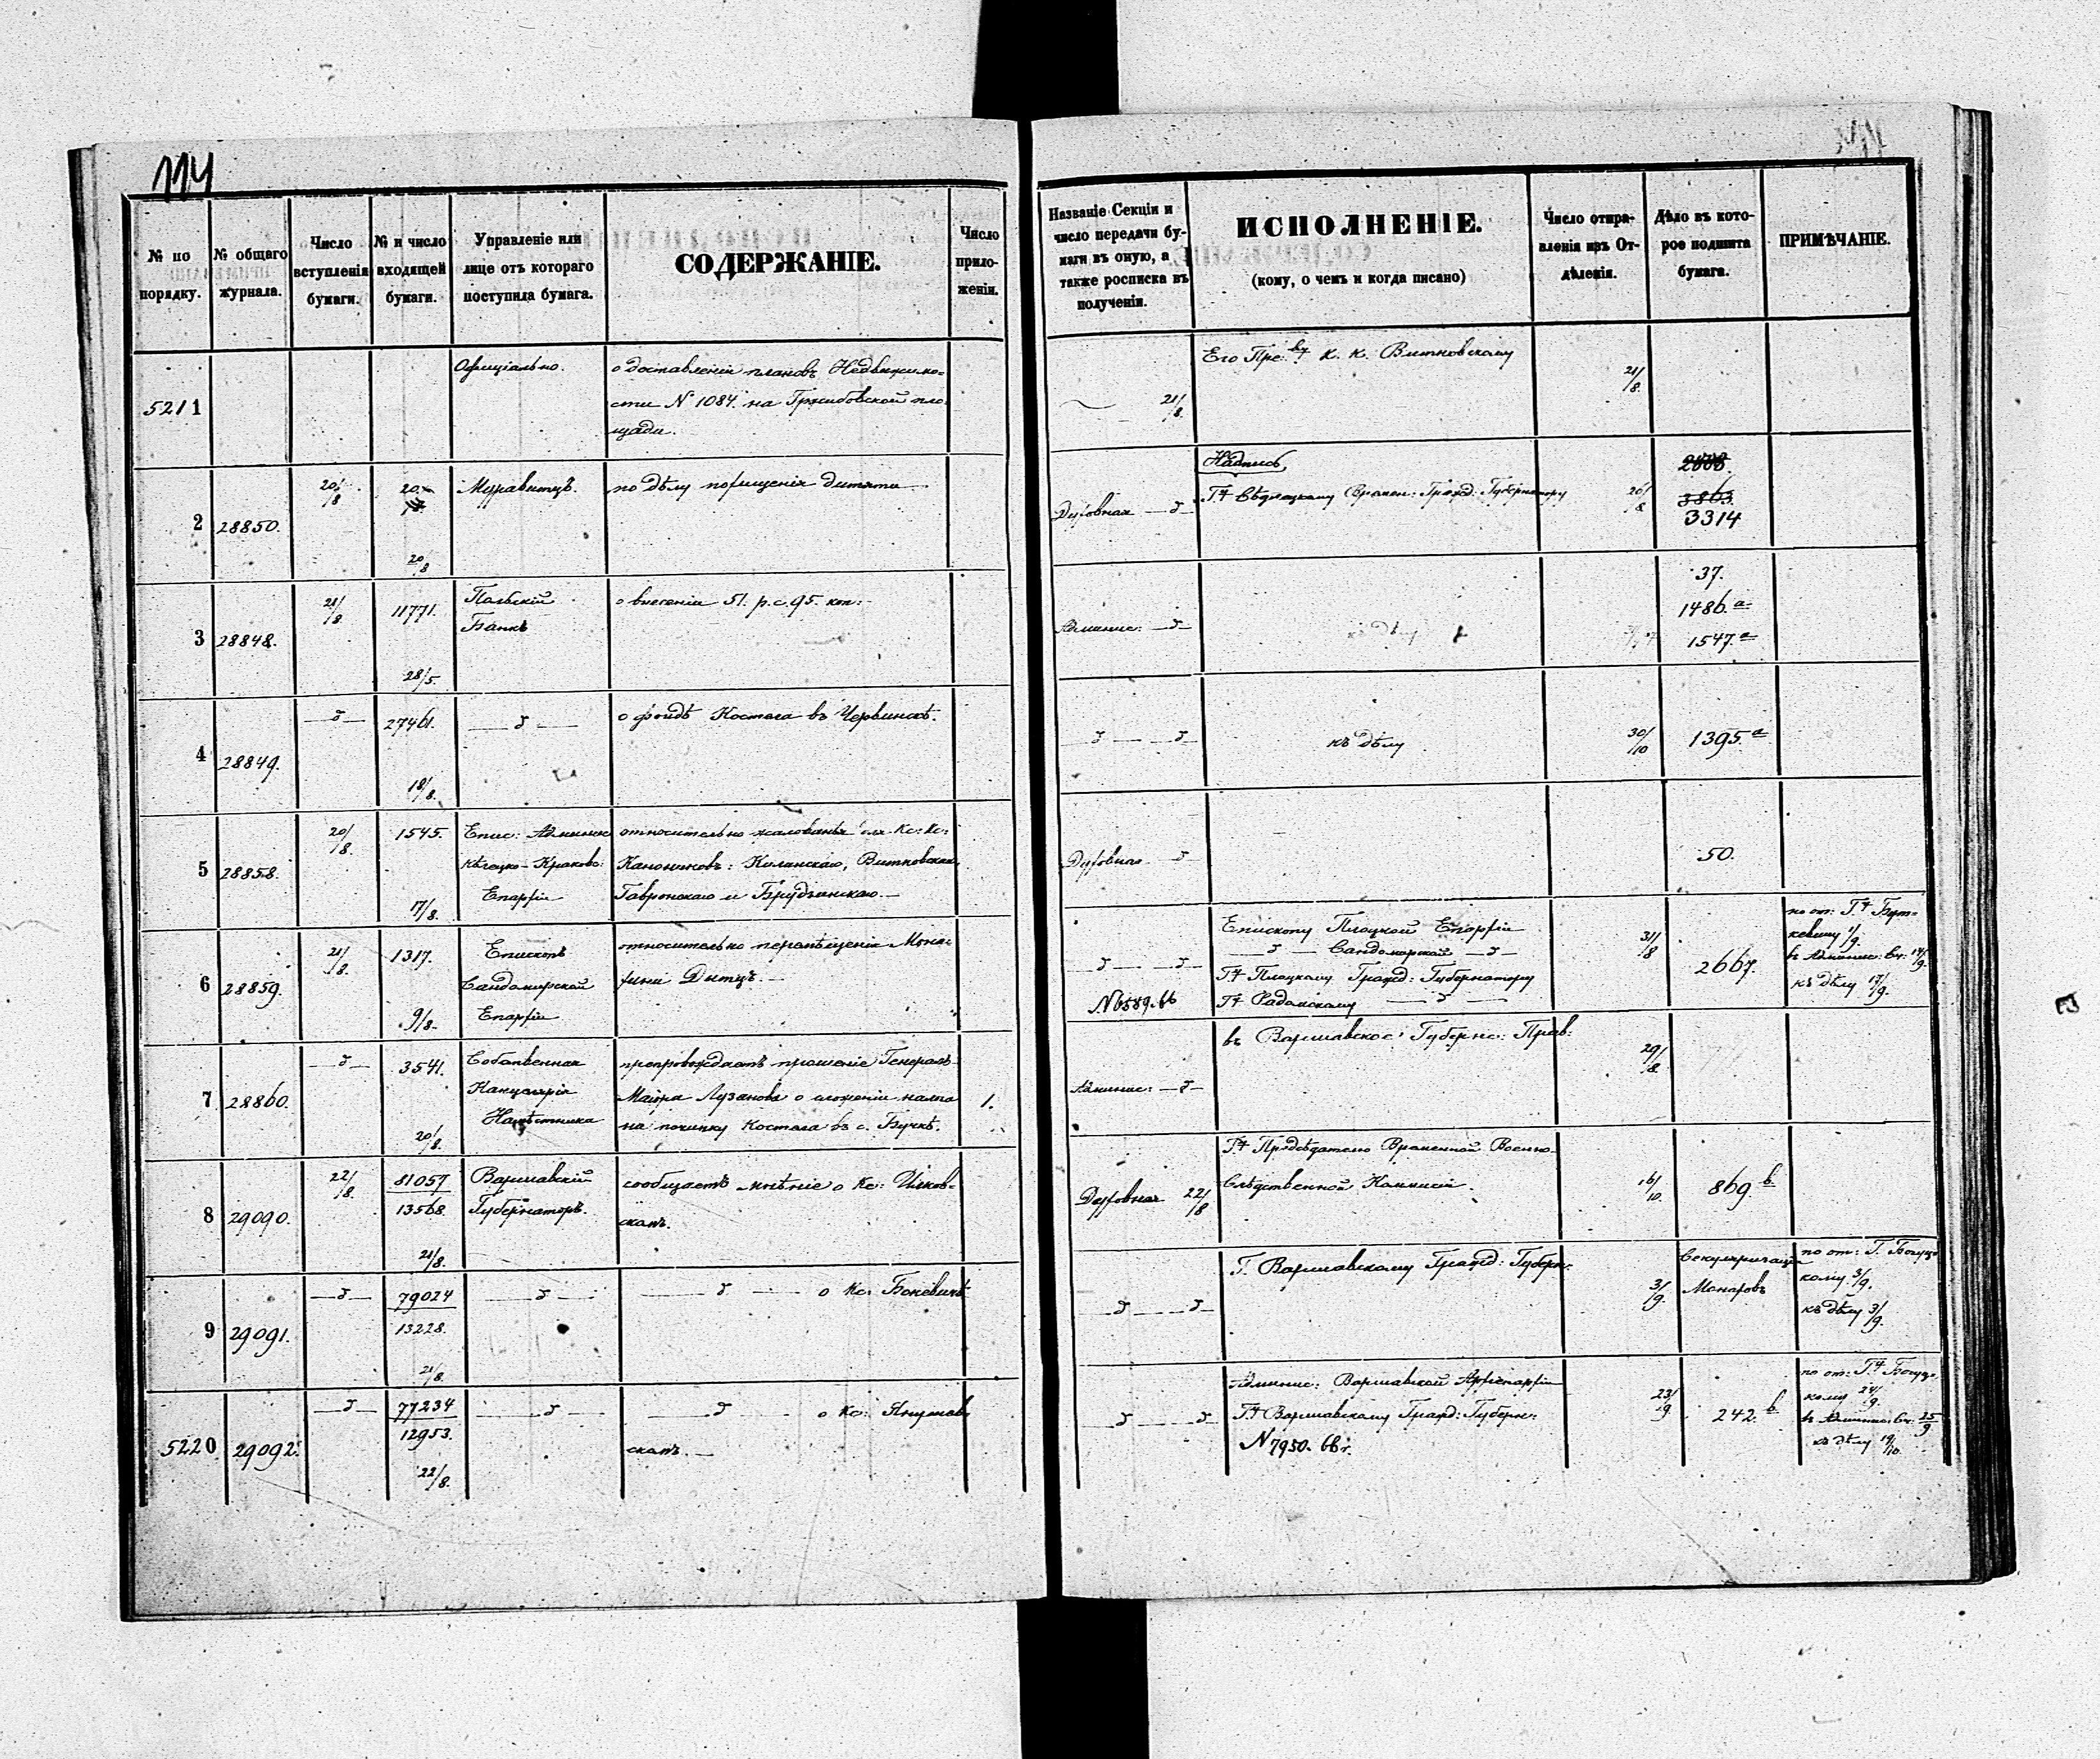 114
№ по
порядку.
№ общаго
журнала.
Число
вступленія
бумаги.
№ и число
входящей
бумаги.
Управленіе или
лице отъ котораго
поступила бумага.
СОДЕРЖАНІЕ.
Число
прило-
женія.
Названіе Секціи и
число передачи бу-
маги въ оную, а
также росписка въ
полученіи.
ИСПОЛНЕНІЕ.
(кому, о чемъ и когда писано)
Число отпра-
вленія изъ От-
дѣленія.
Дѣло въ кото-
рое подшита
бумага.
ПРИМѢЧАНІЕ.
5211
Офиціально.
о доставленіи плановъ Недвижимо-
сти N 1084. на Гржибовской пло-
щади.
21/8.
Его Пре: ву К. К. Витковскому
21/8.
2
28850.
20/8
20.
20/8
Муравитцъ.
по дѣлу похищенія дитяти
Духовная
Надпись,
Гну Сѣдлецкому Времен: Гражд: Губернатору
26/8
3863
3314
3
28848.
21/8.
11771.
28/5.
Польскій
Банкъ
о внесеніи 51. р. с. 95. коп:
Админис:
37.
1486. а
1547. а
4
28849.
27461.
18/8.
о фондѣ Костела въ Червинскѣ.
къ дѣлу
30/10
1395. а
5
28858.
20/8.
1545.
17/8.
Епис: Админис
Кѣлецко-Краково:
Епархіи
относительно жалованья для Кс: Кс:
Канониковъ: Колинскаго, Витковскаго,
Гавронскаго и Брудзинскаго.
Духовная
50.
6
28859.
21/8.
1317.
9/8.
Епископъ
Сандомирской
Епархіи
относительно перемѣщенія Мона-
хини Дитцъ.
N 6589. 66
Епископу Плоцкой Епархіи
Сандомирской
Гну Плоцкому Гражд: Губернатору
Гну Радомскому
31/8
2667.
по от: Гну Бут-
кевичу 1/9.
въ Админис: Сч: 14/9.
къ дѣлу 17/9.
7
28860.
3541.
20/8.
Собственная
Канцелярія
Намѣстника
препровождаетъ прошеніе Генералъ-
Маіора Лузанова о сложеніи налога
на починку Костела въ с. Бучкѣ.
1.
Админис:
въ Варшавское Губернс: Прав:
29/8.
8
29090.
22/8.
81057
13568.
21/8.
Варшавскій
Губернаторъ.
сообщаетъ мнѣніе о Кс: Илков-
скомъ.
Духовная 22/8
Гну Предсѣдателю Временной Военно-
Слѣдственной Коммисіи.
16/10.
869. b
9
29091.
79024
13228.
21/8.
о Кс: Бокевичѣ
Г. Варшавскому Гражд: Губерн:
3/9.
Секуляризація
Монаховъ
по от: Г. Богуц-
кому. 3/9.
къ дѣлу 3/9.
5220
29092.
77234
12953.
22/8.
о Кс: Янушев-
скомъ.
Админис: Варшавской Архіепархіи
Гну Варшавскому Гражд: Губерн:
N 7950. 66 г.
23/9
242. b
по от: Гну Богуц-
кому 24/9.
въ Админис: Сч: 25/9
къ дѣлу 19/10.